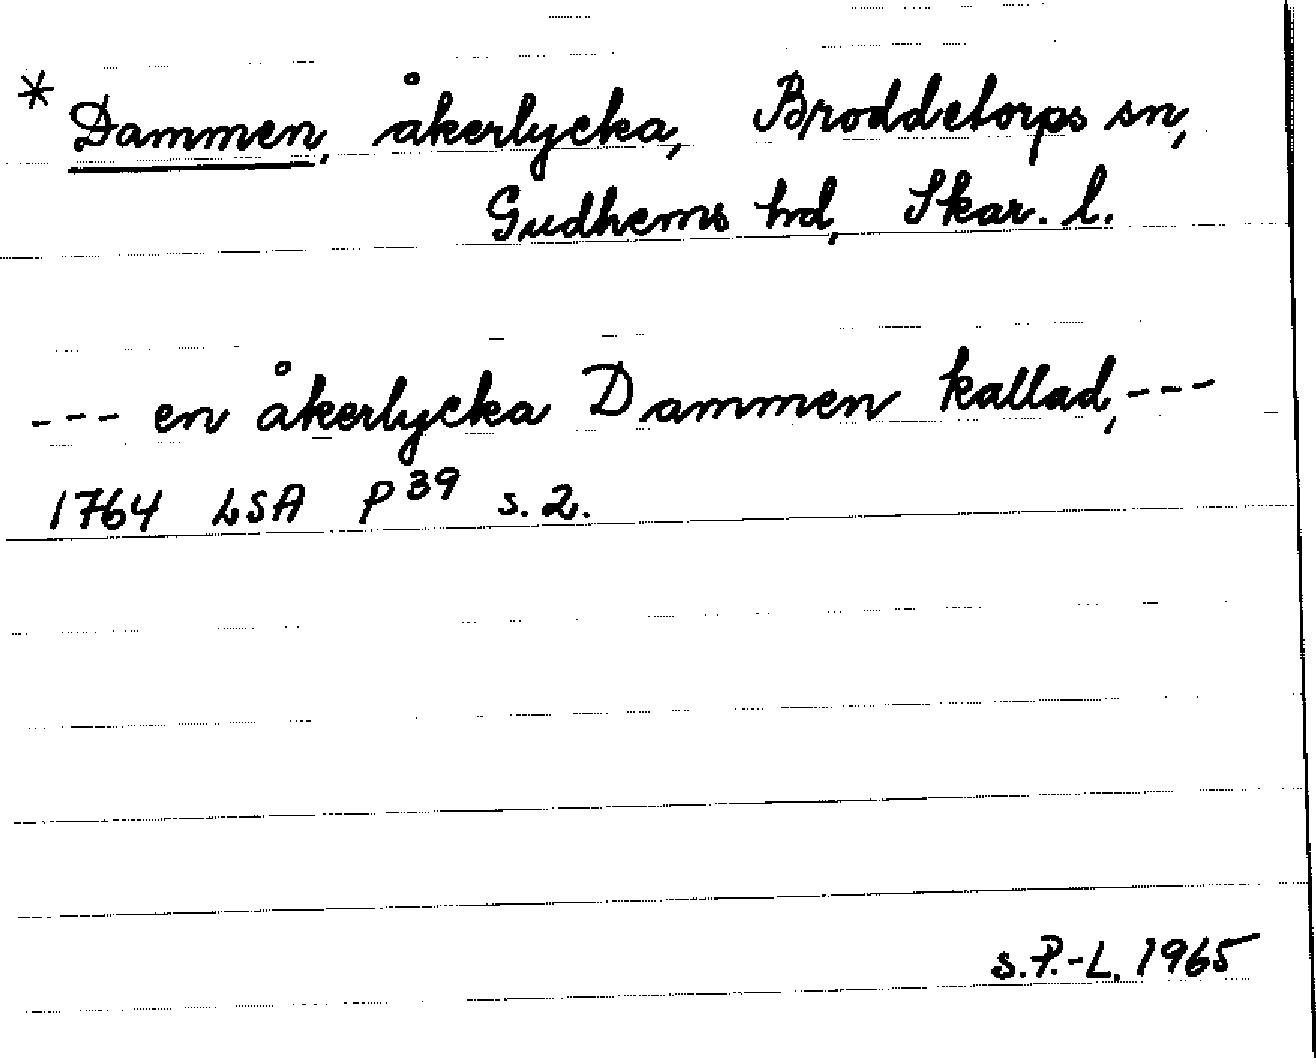 * Dammen, åkerlycka, Broddetorps sn,
Gudhems hd, Skar. l.
--- en åkerlycka Dammen kallad, ---
1764 LSA P 39 s. 2.
S.P.-L. 1965